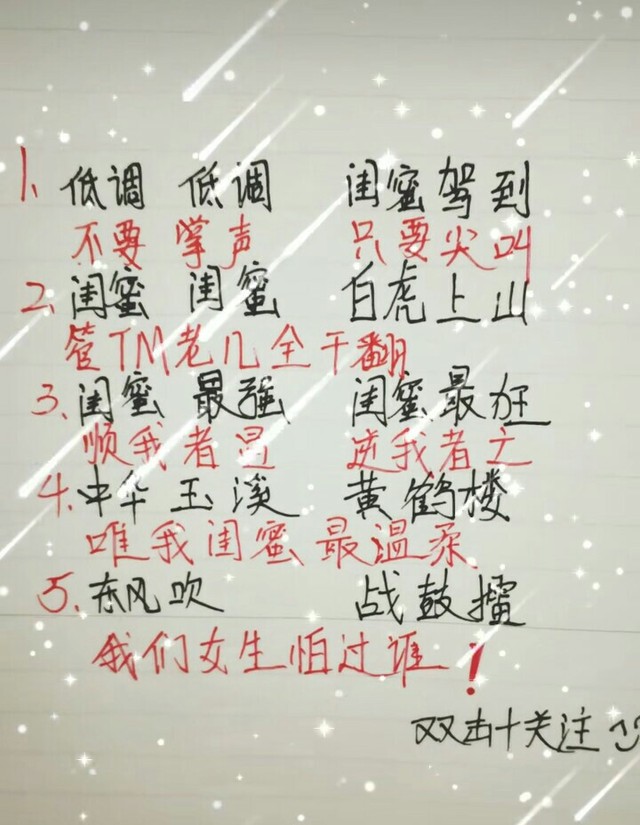 1、低调 低调 闺蜜驾到
不要掌声 只要尖叫
2、闺蜜 闺蜜 白虎上山
管TM老几全干翻
3、闺蜜 最强 闺蜜最狂
顺我者昌 逆我者亡
4、中华玉溪 黄鹤楼
唯我闺蜜最温柔
5、东风吹 战鼓擂
我们女生怕过谁!
双击+关注